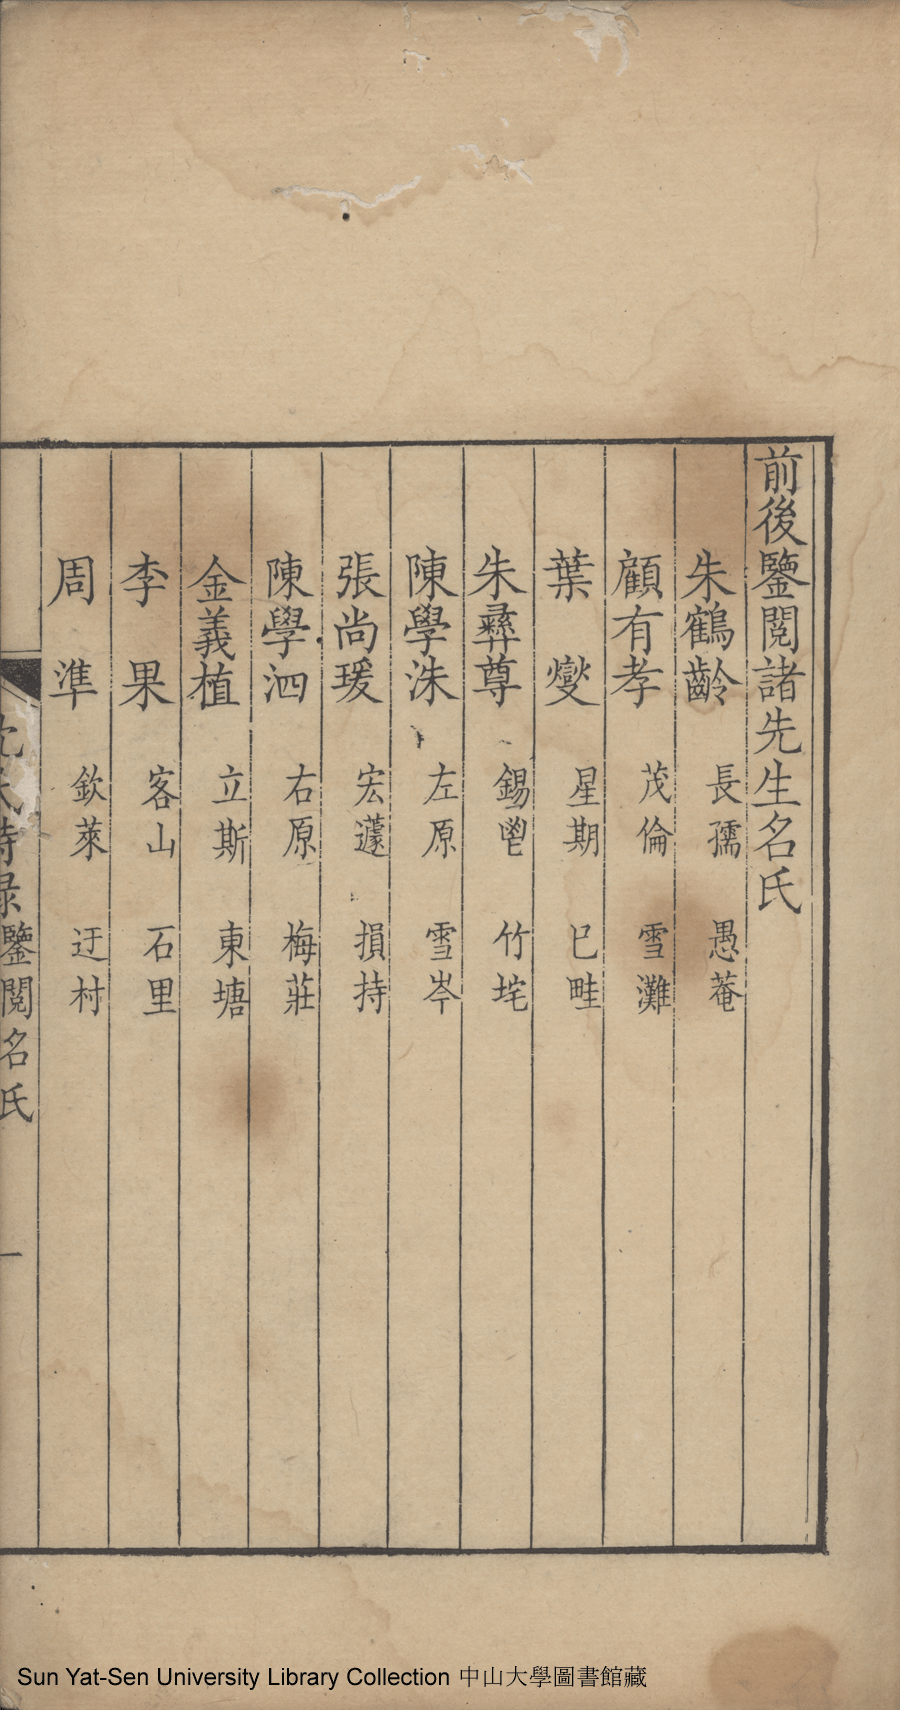 前後鑒閱諸先生名氏
朱鶴齡 長孺 愚菴
顧有孝 茂倫 雪灘
葉燮 星期 巳畦
朱彝尊 錫鬯 竹垞
陳學洙 左原 雪岑
張尚瑗 宏蘧 損持
陳學泗 右原 梅莊
金義植 立斯 東塘
李果 客山 石里
周準 欽萊 迂村
沈氏詩录鑒閱名氏 一
Sun Yat-Sen University Library Collection 中山大學圖書館藏